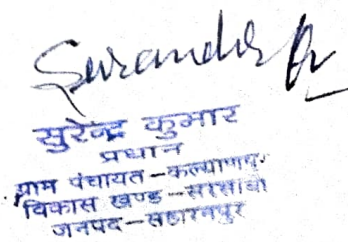 Surender Kr
सुरेन्द्र कुमार
प्रधान
ग्राम पंचायत-कल्याणपुर
विकास खण्ड-सरसावा
जनपद-सहारनपुर